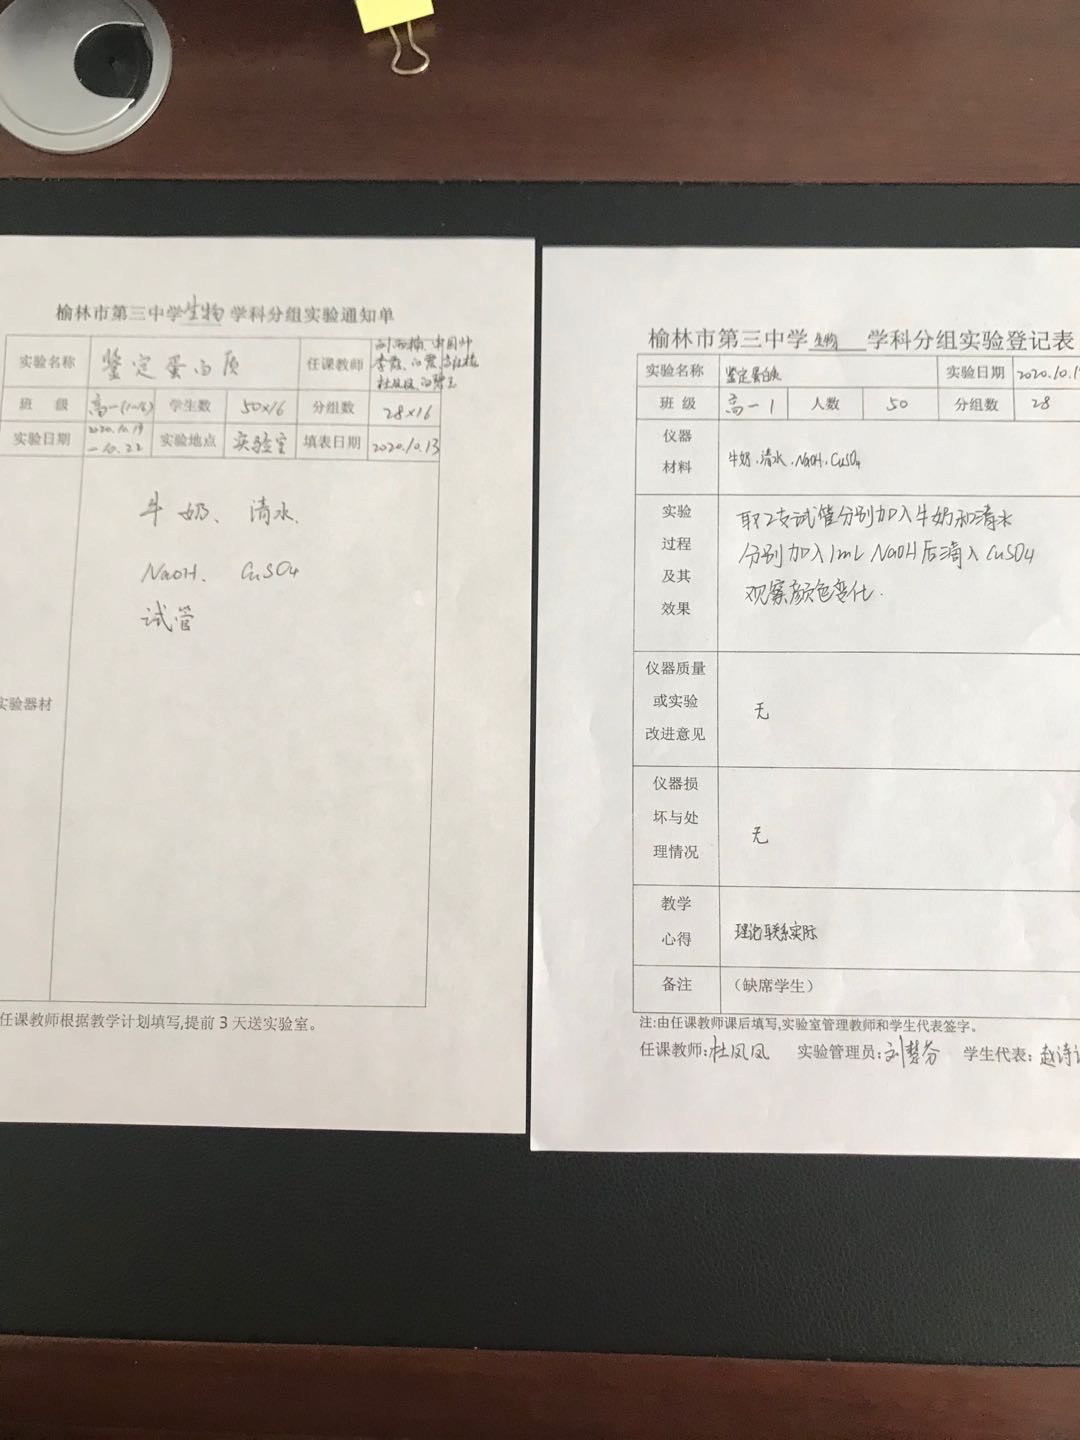 榆林市第三中学生物学科分组实验通知单
实验名称 鉴定蛋白质 任课教师
班 级 高一(1~16) 学生数 50×16 分组数 28×16
实验日期 2020.10.19 — 10.22 实验地点 实验室 填表日期 2020.10.13
牛奶、清水、
NaOH、CuSO4
试管
实验器材
任课教师根据教学计划填写,提前3天送实验室。
榆林市第三中学 生物 学科分组实验登记表
实验名称 鉴定蛋白质 实验日期 2020.10.
班 级 高一1 人数 50 分组数 28
仪器
材料
牛奶、清水、NaOH、CuSO4
实验
过程
及其
效果
取2支试管分别加入牛奶和清水
分别加入1mL NaOH后滴入CuSO4
观察颜色变化.
仪器质量
或实验
改进意见
无
仪器损
坏与处
理情况
无
教学
心得
理论联系实际
备注 (缺席学生)
注:由任课教师课后填写,实验室管理教师和学生代表签字。
任课教师:杜凤凤 实验管理员:刘慧芬 学生代表:赵诗